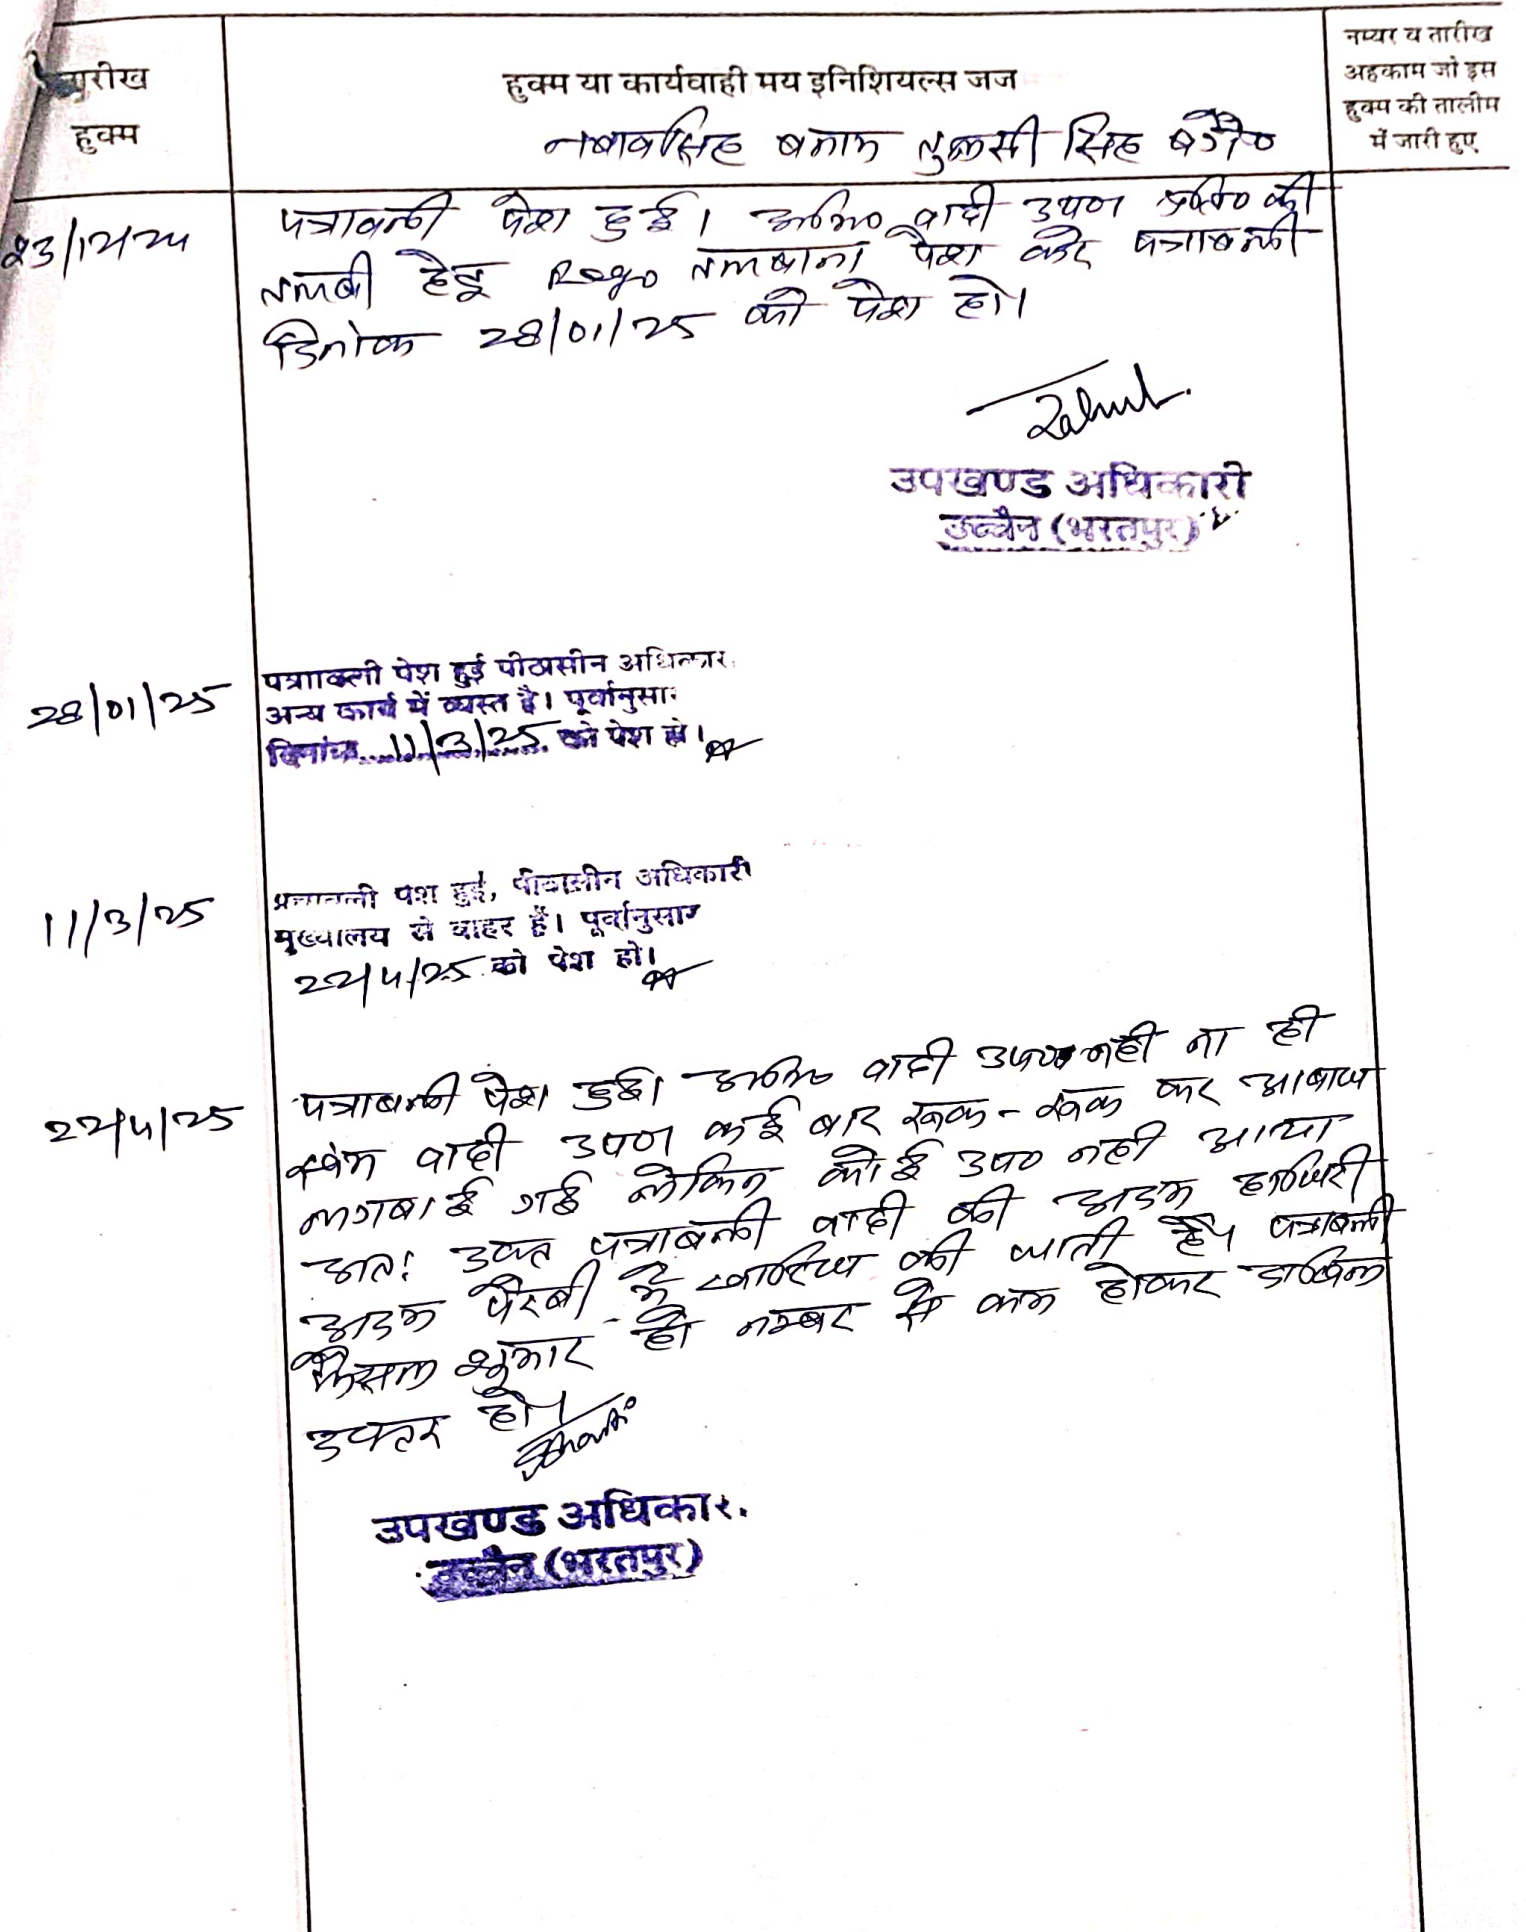 तारीख
हुक्म
हुक्म या कार्यवाही मय इनिशियल्स जज
नम्बर व तारीख
अहकाम जो इस
हुक्म की तालीम
में जारी हुए
नबावसिंह बनाम तुलसी सिंह वगै०
23/12/24
पत्रावली पेश हुई। अभि० वादी उप० प्रति० की
तलबी हेतु Rego तलबाना पेश करे पत्रावली
दिनांक 28/01/25 को पेश हो।
उपखण्ड अधिकारी
उच्चैन (भरतपुर)
28/01/25
पत्रावली पेश हुई पीठासीन अधिकार
अन्य कार्य में व्यस्त है। पूर्वानुसार
दिनांक 11/3/25 को पेश हो।
11/3/25
पत्रावली पेश हुई, पीठासीन अधिकारी
मुख्यालय से बाहर हैं। पूर्वानुसार
22/4/25 को पेश हो।
22/4/25
पत्राबली पेश हुई। अभि० वादी उप० नही ना ही
स्वंम वादी उप० कई बार रूक-रूक कर आबाज
लगबाई गई लेकिन कोई उप० नही आया
अत: उक्त पत्राबली वादी की अदम हाजिरी
अदम पैरबी में खारिज की जाती है। पत्राबली
फैसल शुमार हो नम्बर से कम होकर दाखिल
दफ्तर हो।
उपखण्ड अधिकार
उच्चैन (भरतपुर)